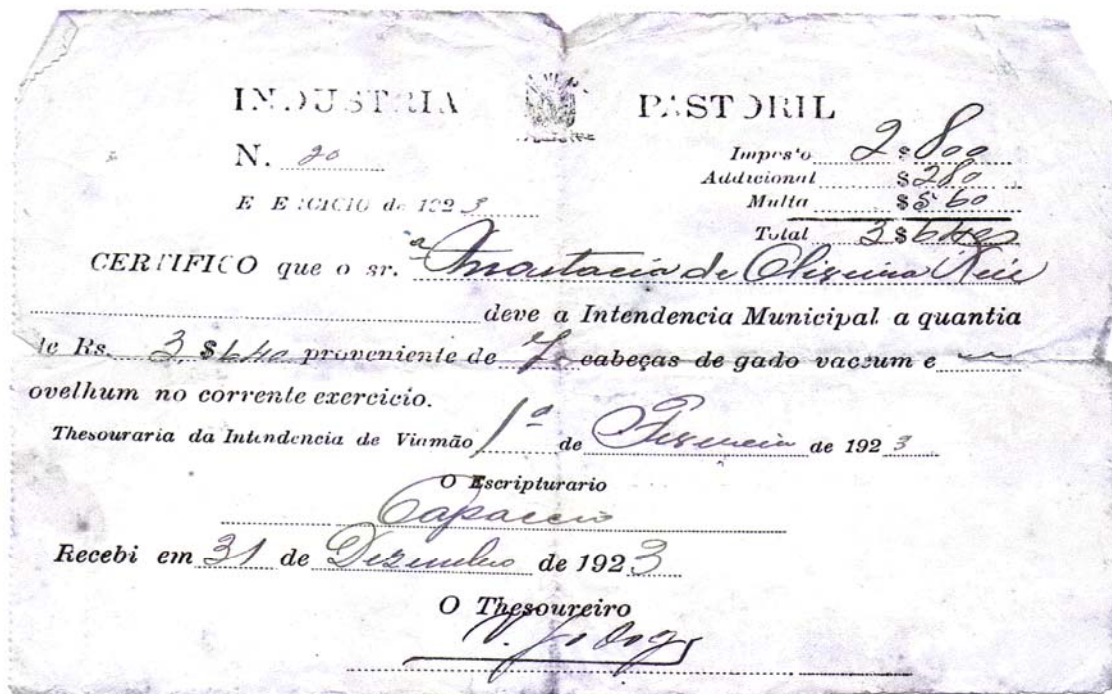 INDUSTRIA PASTORIL
N. 20
Imposto 2$800
Addicional $280
EXERCICIO de 1923
Multa $560
Total 3$640
CERTIFICO que o sr.ª Anastacia de Oliveira Reis
deve a Intendencia Municipal a quantia
de Rs. 3$640 proveniente de 7 cabeças de gado vaccum e
ovelhum no corrente exercicio.
Thesouraria da Intendencia de Viamão 1º de Fevereiro de 1923
O Escripturario
Recebi em 31 de Dezembro de 1923
O Thesoureiro